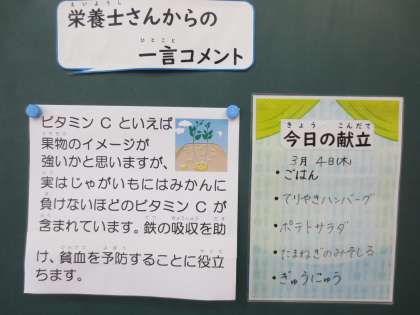 栄養士さんからの
一言コメント
ビタミン C といえば
果物のイメージが
強いかと思いますが、
実はじゃがいもにはみかんに
負けないほどのビタミン C が
含まれています。鉄の吸収を助
け、貧血を予防することに役立
ちます。
今日の献立
3月 4日(木)
・ごはん
・てりやきハンバーグ
・ポテトサラダ
・たまねぎのみそしる
・ぎゅうにゅう